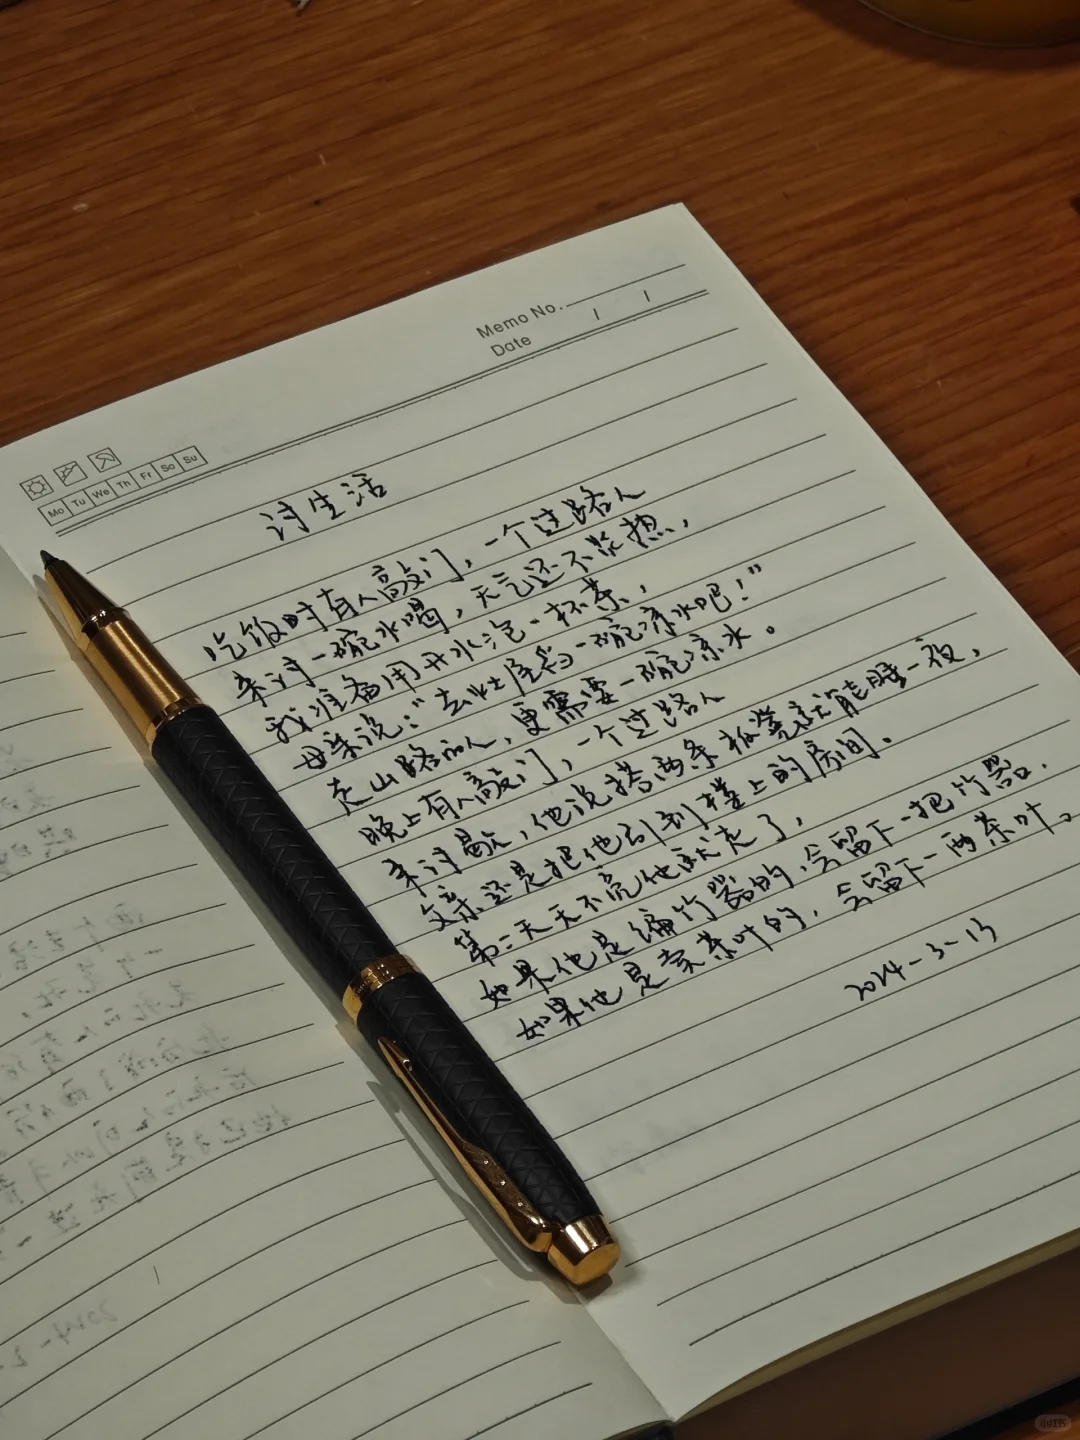 Memo No.
Date / /
Mo Tu We Th Fr Sa Su
讨生活
吃饭时有人敲门，一个过路人
来讨一碗水喝，天气还不炎热，
我准备用开水泡一杯茶，
母亲说：“去灶屋舀一碗凉水吧！”
走山路的人，更需要一碗凉水。
晚上有人敲门，一个过路人
来讨歇，他说搭两条板凳就能睡一夜，
父亲还是把他引到楼上的房间。
第二天天不亮他就走了，
如果他是编竹器的，会留下一把竹器.
如果他是卖茶叶的，会留下一两茶叶。
2024-3-13
小红书